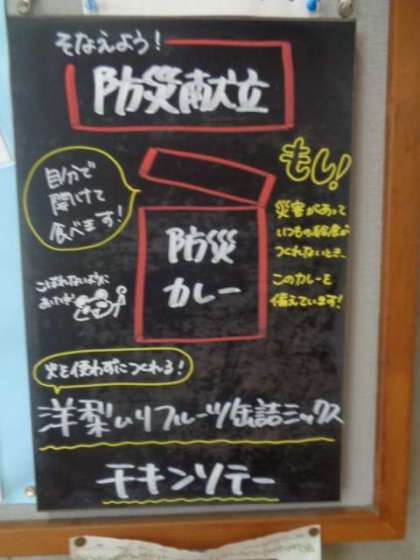 そなえよう!
防災献立
自分で
開けて
食べます!
もし!
災害があって
いつもの給食が
つくれないとき、
このカレーを
備えています!
防災
カレー
こぼれないように
火を使わずにつくれる!
洋梨いりフルーツ缶詰ミックス
チキンソテー